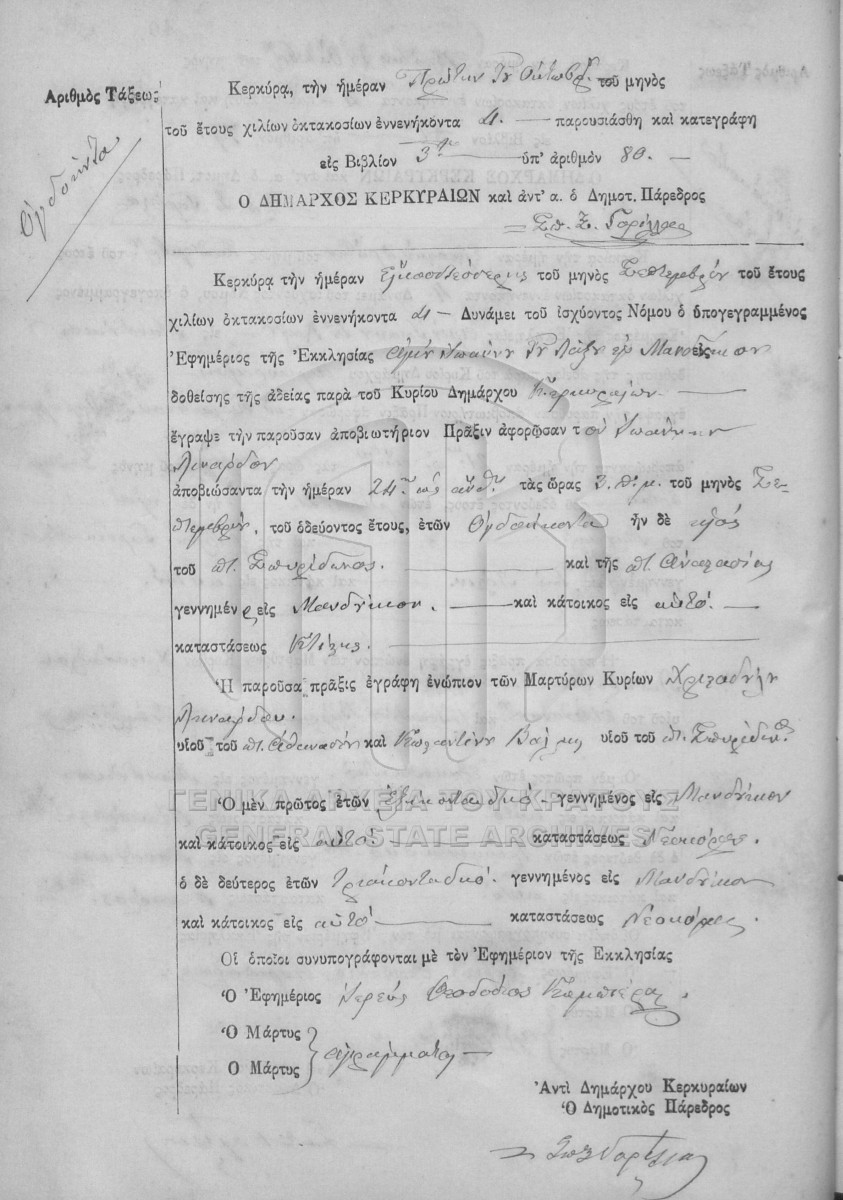 Ἀριθμὸς Τάξεως
Ὀγδοήντα
Κερκύρᾳ, τὴν ἡμέραν Πρώτην τοῦ μηνὸς
τοῦ ἔτους χιλίων ὀκτακοσίων ἐννενήκοντα 4. — παρουσιάσθη καὶ κατεγράφη
εἰς Βιβλίον 3ον ὑπ' ἀριθμὸν 80. —
Ο ΔΗΜΑΡΧΟΣ ΚΕΡΚΥΡΑΙΩΝ καὶ ἀντ' α. ὁ Δημοτ. Πάρεδρος
Κερκύρᾳ τὴν ἡμέραν εἰκοστέσσερης τοῦ μηνὸς Σεπτεμβρίου τοῦ ἔτους
χιλίων ὀκτακοσίων ἐννενήκοντα 4 — Δυνάμει τοῦ ἰσχύοντος Νόμου ὁ ὑπογεγραμμένος
Ἐφημέριος τῆς Ἐκκλησίας εἰς
δοθείσης τῆς ἀδείας παρὰ τοῦ Κυρίου Δημάρχου Κερκυραίων
ἔγραψε τὴν παροῦσαν ἀποβιωτήριον Πρᾶξιν ἀφορῶσαν τ ον Ἰωάννην
Λιναρδον
ἀποβιώσαντα τὴν ἡμέραν 24 τὰς ὥρας 3. π. μ. τοῦ μηνὸς Σε-
πτεμβρίου, τοῦ ὁδεύοντος ἔτους, ἐτῶν Ὀγδοήκοντα ἦν δὲ υἱός
τοῦ π. Σπυρίδωνος. καὶ τῆς π. Αναστασίας
γεννημέν ος εἰς Μανδούκιον. καὶ κάτοικος εἰς αὐτό. —
καταστάσεως Κτίστης.
Ἡ παροῦσα πρᾶξις ἐγράφη ἐνώπιον τῶν Μαρτύρων Κυρίων
Λιναρδου.
υἱοῦ τοῦ π. Αθανασίου καὶ Κωσταντίνου υἱοῦ τοῦ π. Σπυρίδων
ΓΕΝΙΚΑ ΑΡΧΕΙΑ ΤΟΥ ΚΡΑΤΟΥΣ
Ὁ μὲν πρῶτος ἐτῶν ἑξηκονταδυό. γεννημένος εἰς Μανδούκιον
GENERAL STATE ARCHIVES
καὶ κάτοικος εἰς αὐτό. καταστάσεως Νεοκόρος.
ὁ δὲ δεύτερος ἐτῶν τριακονταδυό. γεννημένος εἰς Μανδούκιον
καὶ κάτοικος εἰς αὐτό καταστάσεως Νεοκόρος.
Οἱ ὁποῖοι συνυπογράφονται μὲ τὸν Ἐφημέριον τῆς Ἐκκλησίας
Ὁ Ἐφημέριος Ἱερεὺς Θεοδόσιος
Ὁ Μάρτυς
Ὁ Μάρτυς ἀγράμματοι —
Ἀντὶ Δημάρχου Κερκυραίων
Ὁ Δημοτικὸς Πάρεδρος